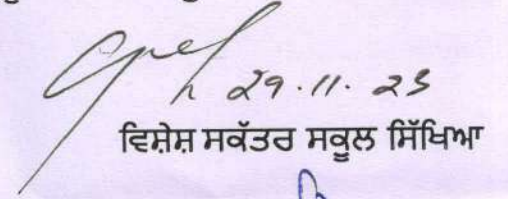 29.11.23
ਵਿਸ਼ੇਸ਼ ਸਕੱਤਰ ਸਕੂਲ ਸਿੱਖਿਆ